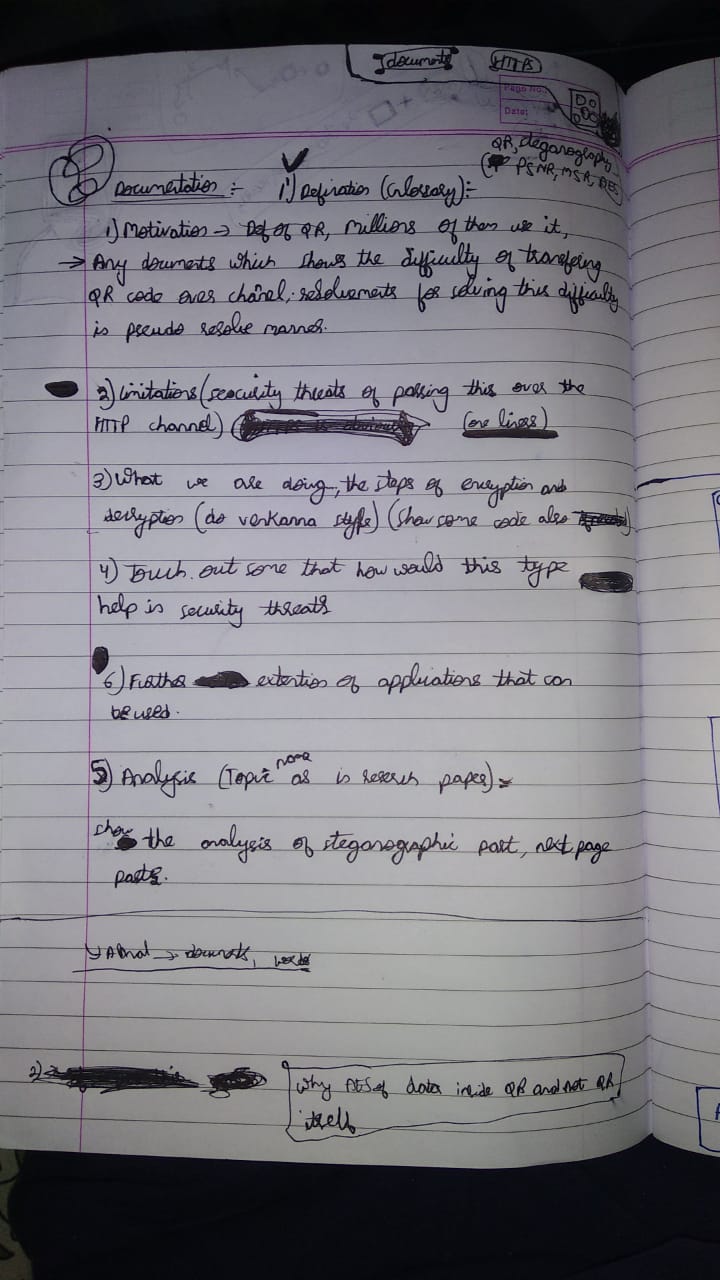 documents HTTPS
Page No.:
Date:
QR, steganography,
PSNR, MSR, AES)
Documentation :- i) Defination (Glossary):-
1) Motivation → Def of QR, Millions of them use it,
→ Any douments which shows the difficulty of transfering
QR code over chanel, resolvements for solving this difficulty
is pseudo resolve manner.
2) limitations (seocurity threats of passing this over the
HTTP channel) (one lines)
3) What we are doing, the steps of encryption and
decryption (do venkanna style) (show some code also
4) Touch out some that how would this type
help is security threats
6) Further extention of applications that can
be used.
5) Analysis (Topic name as is reserch paper):-
show the analysis of steganographic part, next page
parts.
documents, words
2)
Why AES of data inside QR and not QR
itself